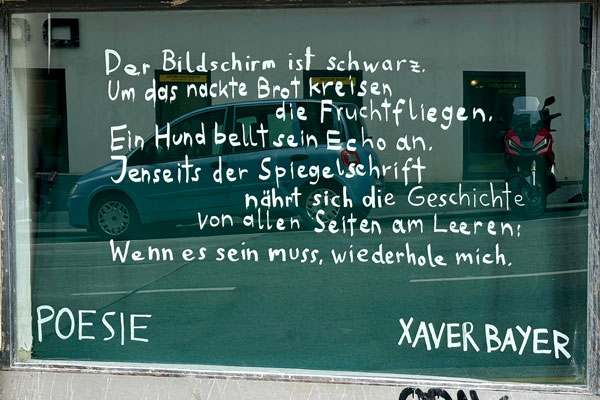 Der Bildschirm ist schwarz.
Um das nackte Brot kreisen
die Fruchtfliegen.
Ein Hund bellt sein Echo an.
Jenseits der Spiegelschrift
nährt sich die Geschichte
von allen Seiten am Leeren:
Wenn es sein muss, wiederhole mich.
POESIE
XAVER BAYER